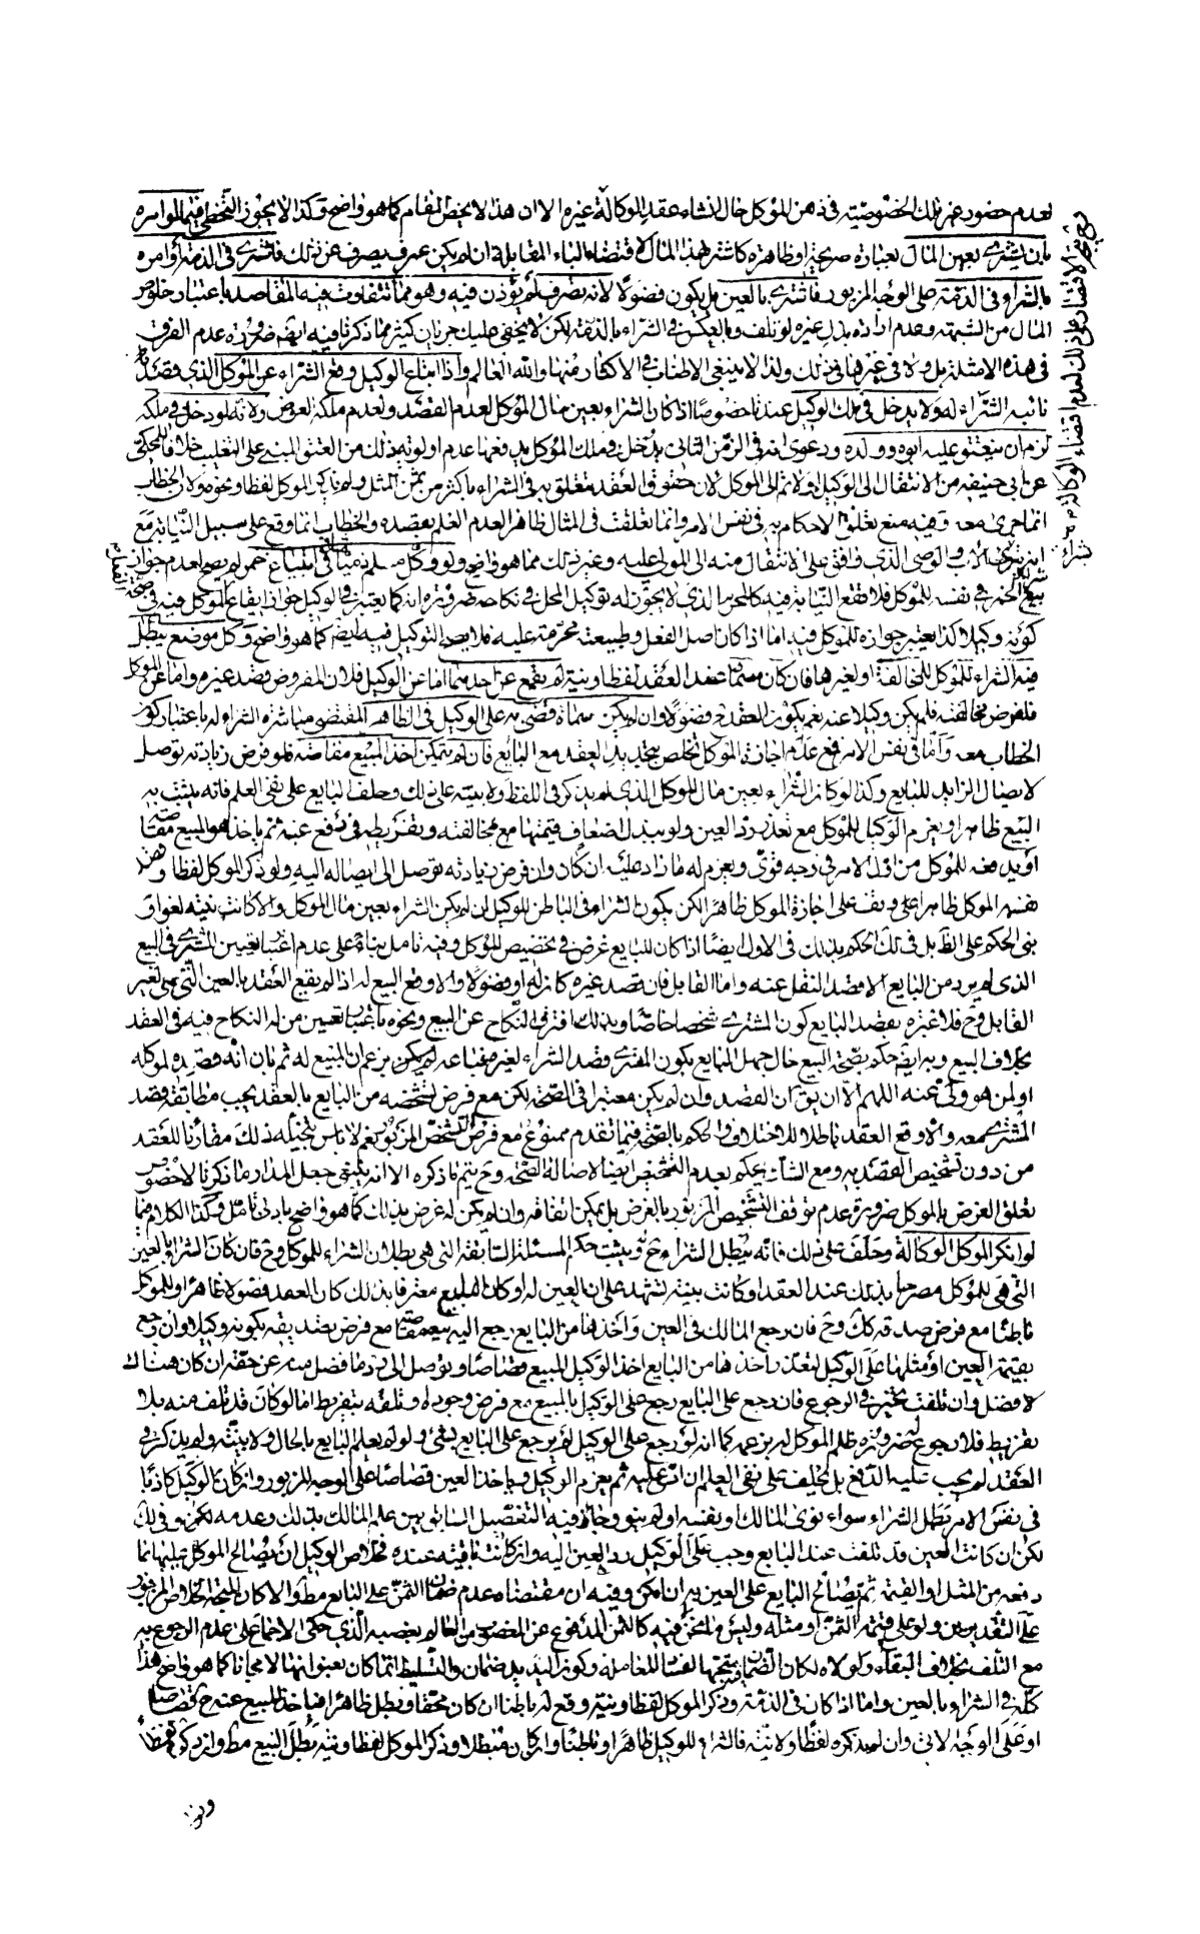 لعدم حضور غير تلك الخصوصية في ذهن الموكل حال انشاء عقد الوكالة غيره الا ان هذا لا يخص المقام كما هو واضح وكذا لا يجوز التخطي فيما لو امره
بان يشتري بعين المال بعبارة صريحة او ظاهرة كاشتر بهذا المال لاقتضاء الباء المقابلة ان لم يكن عرف يصرف عن ذلك فاشترى في الذمة او امره
بالشراء في الذمة على الوجه المزبور فاشترى بالعين بل يكون فضولا لانه تصرف لم يؤذن فيه وهو مما تتفاوت فيه المقاصد باعتبار خلوص
المال من الشبهة وعدم ارادة بدل غيره لو تلف وبالعكس في الشراء بالذمة لكن لا يخفى عليك جريان كثير مما ذكرنا فيه ايضا ضرورة عدم الفرق
في هذه الامثلة بل ولا في غيرها في ذلك ولذا لا ينبغي الاطناب في الاكثار منها والله العالم واذا ابتاع الوكيل وقع الشراء عن الموكل الذي قصد
نائبه الشراء له ولا يدخل في ملك الوكيل عندنا خصوصا اذا كان الشراء بعين مال الموكل لعدم القصد ولعدم ملكه العوض ولانه لو دخل في ملكه
لزم ان ينعتق عليه ابوه وولده ودعوى انه في الزمن الثاني يدخل في ملك الموكل يدفعها عدم اولويته بذلك من العتق المبني على التغليب خلافا للمحكي
عن ابي حنيفة من الانتقال الى الوكيل اولا ثم الى الموكل لان حقوق العقد متعلق به في الشراء باكثر من ثمن المثل ولم يذكر الموكل لفظا ونحوه ولان الخطاب
انما جرى معه وفيه منع تعلق الاحكام به في نفس الامر وانما تعلقت في المثال ظاهرا لعدم العلم بقصده والخطاب انما وقع على سبيل النيابة مع
الاب والوصي الذي وافق على الانتقال منه الى المولى عليه وغير ذلك مما هو واضح ولو وكل مسلم ذميا في ابتياع خمر لم يصح لعدم جواز
بيع الخمر في نفسه للموكل فلا تقع النيابة فيه كالمحرم الذي لا يجوز له توكيل المحل في نكاحه ضرورة انه كما يعتبر في الوكيل جواز ايقاع الموكل فيه في صحة
كونه وكيلا كذا يعتبر جوازه للموكل فيه اما اذا كان اصل الفعل وطبيعته محرمة عليه فلا يصح التوكيل فيه ايضا كما هو واضح وكل موضع يبطل
فيه الشراء للموكل للمخالفة او لغيرها فان كان سماه عند العقد لفظا ونية لم يقع عن احدهما اما عن الوكيل فلان المفروض قصد غيره واما عن الموكل
فلفرض مخالفته فلم يكن وكيلا عنه نعم يكون العقد ح فضولا وان لم يكن سماه قضي به على الوكيل في الظاهر المقتضي مباشرة الشراء له باعتبار كون
الخطاب معه واما في نفس الامر فمع عدم اجازة الموكل تخلص بتجديد العقد مع البايع فان لم يتمكن اخذ المبيع مقاصة فلو فرض زيادته توصل
لايصال الزايد للبايع وكذا لو كان الشراء بعين مال الموكل الذي لم يذكر في اللفظ ولا بينة على ذلك وحلف البايع على نفي العلم فانه يثبت به
البيع ظاهرا ويغرم الوكيل للموكل مع تعذر رد العين ولو ببذل اضعاف قيمتها مع مخالفته وتفريطه في دفع عينه ثم ياخذ هو المبيع مقاصة
او يدفعه للموكل من اول الامر في وجه قوي ويغرم له ما زاد عليه ان كان وان فرض زيادته توصل الى ايصاله اليه ولو ذكر الموكل لفظا وقصد
نفسه الموكل ظاهرا على وقف على اجازة الموكل ظاهرا لكن يكون الشراء في الباطن للوكيل ان لم يكن الشراء بعين مال الموكل والا كانت بنيته لغوا وقد
بنى الحكم على الظ بل في تلك الحكم بذلك في الاول ايضا اذا كان للبايع غرض في تخصيص الموكل وفيه تامل بناء على عدم اعتبار تعيين المشتري في البيع
الذي لم يرد من البايع الا قصد النقل عنه واما القابل فان قصد غيره كان له او فضولا والا وقع البيع له اذا لم يقع العقد بالعين التي هي لغير
القابل وح فلا عبرة بقصد البايع كون المشتري شخصا خاصا وبذلك افترق النكاح عن البيع ونحوه باعتبار تعيين من له النكاح فيه في العقد
بخلاف البيع وبه ايضا حكم بصحة البيع حال جهل البايع بكون المشتري قصد الشراء لغيره فباعه له يزعم ان المبيع له ثم بان انه قصده لموكله
او لمن هو ولي عنه اللهم الا ان يق ان القصد وان لم يكن معتبرا في الصحة لكن مع فرض تشخصه من البايع بالعقد يجب مطابقة قصد
المشتري معه والا وقع العقد باطلا للاختلاف والحكم بالصحة فيما تقدم ممنوع مع فرض التشخص المزبور نعم لا باس بتخيله ذلك مقارنا للعقد
من دون تشخيص العقد به ومع الشك يحكم بعدم التشخيص ايضا لاصالة الصحة وح يتم ما ذكره الا انه ينبغي جعل المدار ما ذكرنا لا خصوص
تعلق الغرض بالموكل ضرورة عدم توقف التشخيص المزبور بالغرض بل يمكن اتفاقه وان لم يكن له غرض بذلك كما هو واضح بادنى تامل وكذا الكلام فيما
لو انكر الموكل الوكالة وحلف على ذلك فانه يبطل الشراء ح ويثبت حكم المسئلة السابقة التي هي بطلان الشراء للموكل وح فان كان الشراء بالعين
التي هي للموكل مصرحا بذلك عند العقد او كانت بينة تشهد على ان العين له او كان البايع معترفا بذلك كان العقد فضولا ظاهرا وللموكل
باطنا مع فرض صدقه كك وح فان رجع المالك في العين واخذها من البايع رجع اليه بيعه مقاصة مع فرض تصديقه بكونه وكيلا وان رجع
بقيمة العين او مثلها على الوكيل لتعذر اخذها من البايع اخذ الوكيل المبيع قصاصا وتوصل الى رد ما فضل منه عن حقه ان كان هناك
لا فضل وان تلفت تخير في الرجوع فان رجع على البايع رجع على الوكيل بالمبيع مع فرض وجوده او تلفه بتفريط اما لو كان قد تلف منه بلا
تفريط فلا رجوع لضرورة ظلم الموكل له بزعمه كما انه لو رجع على الوكيل لم يرجع على البايع بشئ ولو لم يعلم البايع بالحال ولا بينة ولم يذكر في
العقد لم يجب عليه الدفع بل يحلف على نفي العلم ان ادعي عليه ثم يغرم الوكيل وياخذ العين قصاصا على الوجه المزبور وان كان الوكيل كاذبا
في نفس الامر بطل الشراء سواء نوى المالك او نفسه او لم ينو وجاء فيه التفصيل السابق بين علم المالك بذلك وعدمه لكن هو في ذلك
لكن ان كانت العين قد تلفت عند البايع وجب على الوكيل رد العين اليه وان كانت باقية عنده فخلاص الوكيل ان يصالح الموكل عليها بما
دفعه من المثل او القيمة ثم يصالح البايع على العين به ان امكن وفيه ان مقتضاه عدم ضمان الثمن على البايع مطلقا والا كان المتجه الخلاص المزبور
على التقديرين ولو على قيمة الثمن او مثله وليس ما نحن فيه كالثمن المدفوع عن المغصوب من العالم بغصبه الذي حكي الاجماع على عدم الرجوع به
مع التلف بخلاف البقاء ولولاه لكان الضمان متجها لفساد المعاملة وكون اليد يد ضمان والتسليط انما كان بعنوانها لا مجانا كما هو واضح هذا
كله في الشراء بالعين واما اذا كان في الذمة وذكر الموكل لفظا ونية وقع له باطنا ان كان محقا وبطل ظاهرا فياخذ المبيع عنه ح قصاصا
او على الوجه الاتي وان لم يذكره لفظا ولا نية فالشراء للوكيل ظاهرا وباطنا وان كان مبطلا وذكر الموكل لفظا ونية بطل البيع مطلقا وان ذكره لفظا